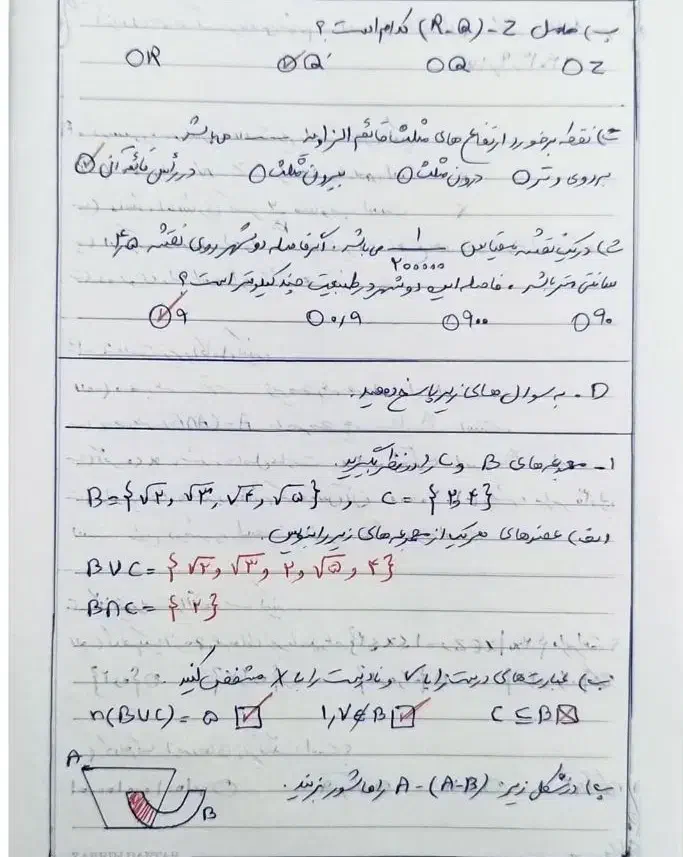 ب) حاصل (R-Q)-Z کدام است؟
○ Z ○ Q ○ Q' ○ R
ت) نقطه برخورد ارتفاع های مثلث قائم الزاویه ........ می باشد.
○ بر روی وتر ○ درون مثلث ○ بیرون مثلث ○ در رأس قائمه آن
ث) در یک نقشه مقیاس ۱/۲۰۰۰۰۰ می باشد. اگر فاصله دو شهر روی نقشه ۴٫۵
سانتی متر باشد، فاصله این دو شهر در طبیعت چند کیلومتر است؟
○ ۹۰ ○ ۹۰۰ ○ ۰٫۹ ○ ۹
D- به سوال های زیر پاسخ دهید.
۱- مجموعه های B و C را در نظر بگیرید.
B={√۲, √۳, √۴, √۵} , C={۲,۴}
الف) عضوهای هر یک از مجموعه های زیر را بنویس.
B∪C={√۲, √۳, ۲, √۵, ۴}
B∩C={۲}
ب) عبارت های درست را با ✓ و نادرست را با × مشخص کنید.
C⊆B ☒ ۱٫۷∉B ☑ n(B∪C)=۵ ☑
پ) در شکل زیر A-(A-B) را هاشور بزنید.
A
B